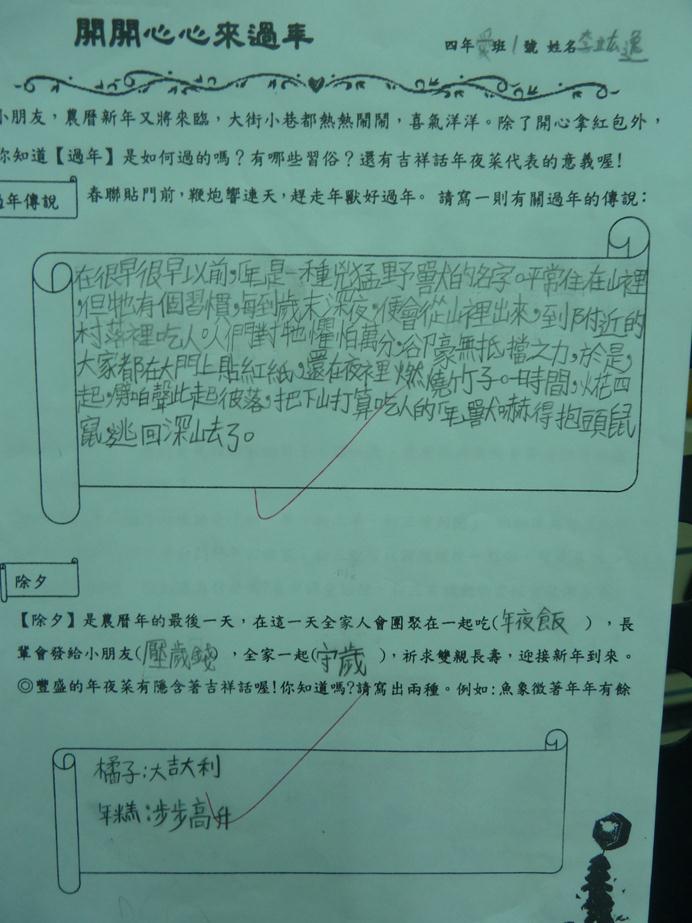 開開心心來過年
四年愛班1號 姓名李竑逸
小朋友，農曆新年又將來臨，大街小巷都熱熱鬧鬧，喜氣洋洋。除了開心拿紅包外，
你知道【過年】是如何過的嗎？有哪些習俗？還有吉祥話年夜菜代表的意義喔！
過年傳說
春聯貼門前，鞭炮響連天，趕走年獸好過年。 請寫一則有關過年的傳說：
在很早很早以前，年是一種兇猛野獸的名字。平常住在山裡
，但牠有個習慣，每到歲末深夜，便會從山裡出來，到附近的
村落裡吃人。人們對牠懼怕萬分，卻豪無抵擋之力，於是，
大家都在大門上貼紅紙，還在夜裡燃燒竹子。一時間，火花四
起，劈啪聲此起彼落，把下山打算吃人的年獸嚇得抱頭鼠
竄，逃回深山去了。
除夕
【除夕】是農曆年的最後一天，在這一天全家人會團聚在一起吃(年夜飯 )，長
輩會發給小朋友(壓歲錢)，全家一起(守歲 )，祈求雙親長壽，迎接新年到來。
◎豐盛的年夜菜有隱含著吉祥話喔!你知道嗎?請寫出兩種。例如:魚象徵著年年有餘
橘子:大吉大利
年糕:步步高升